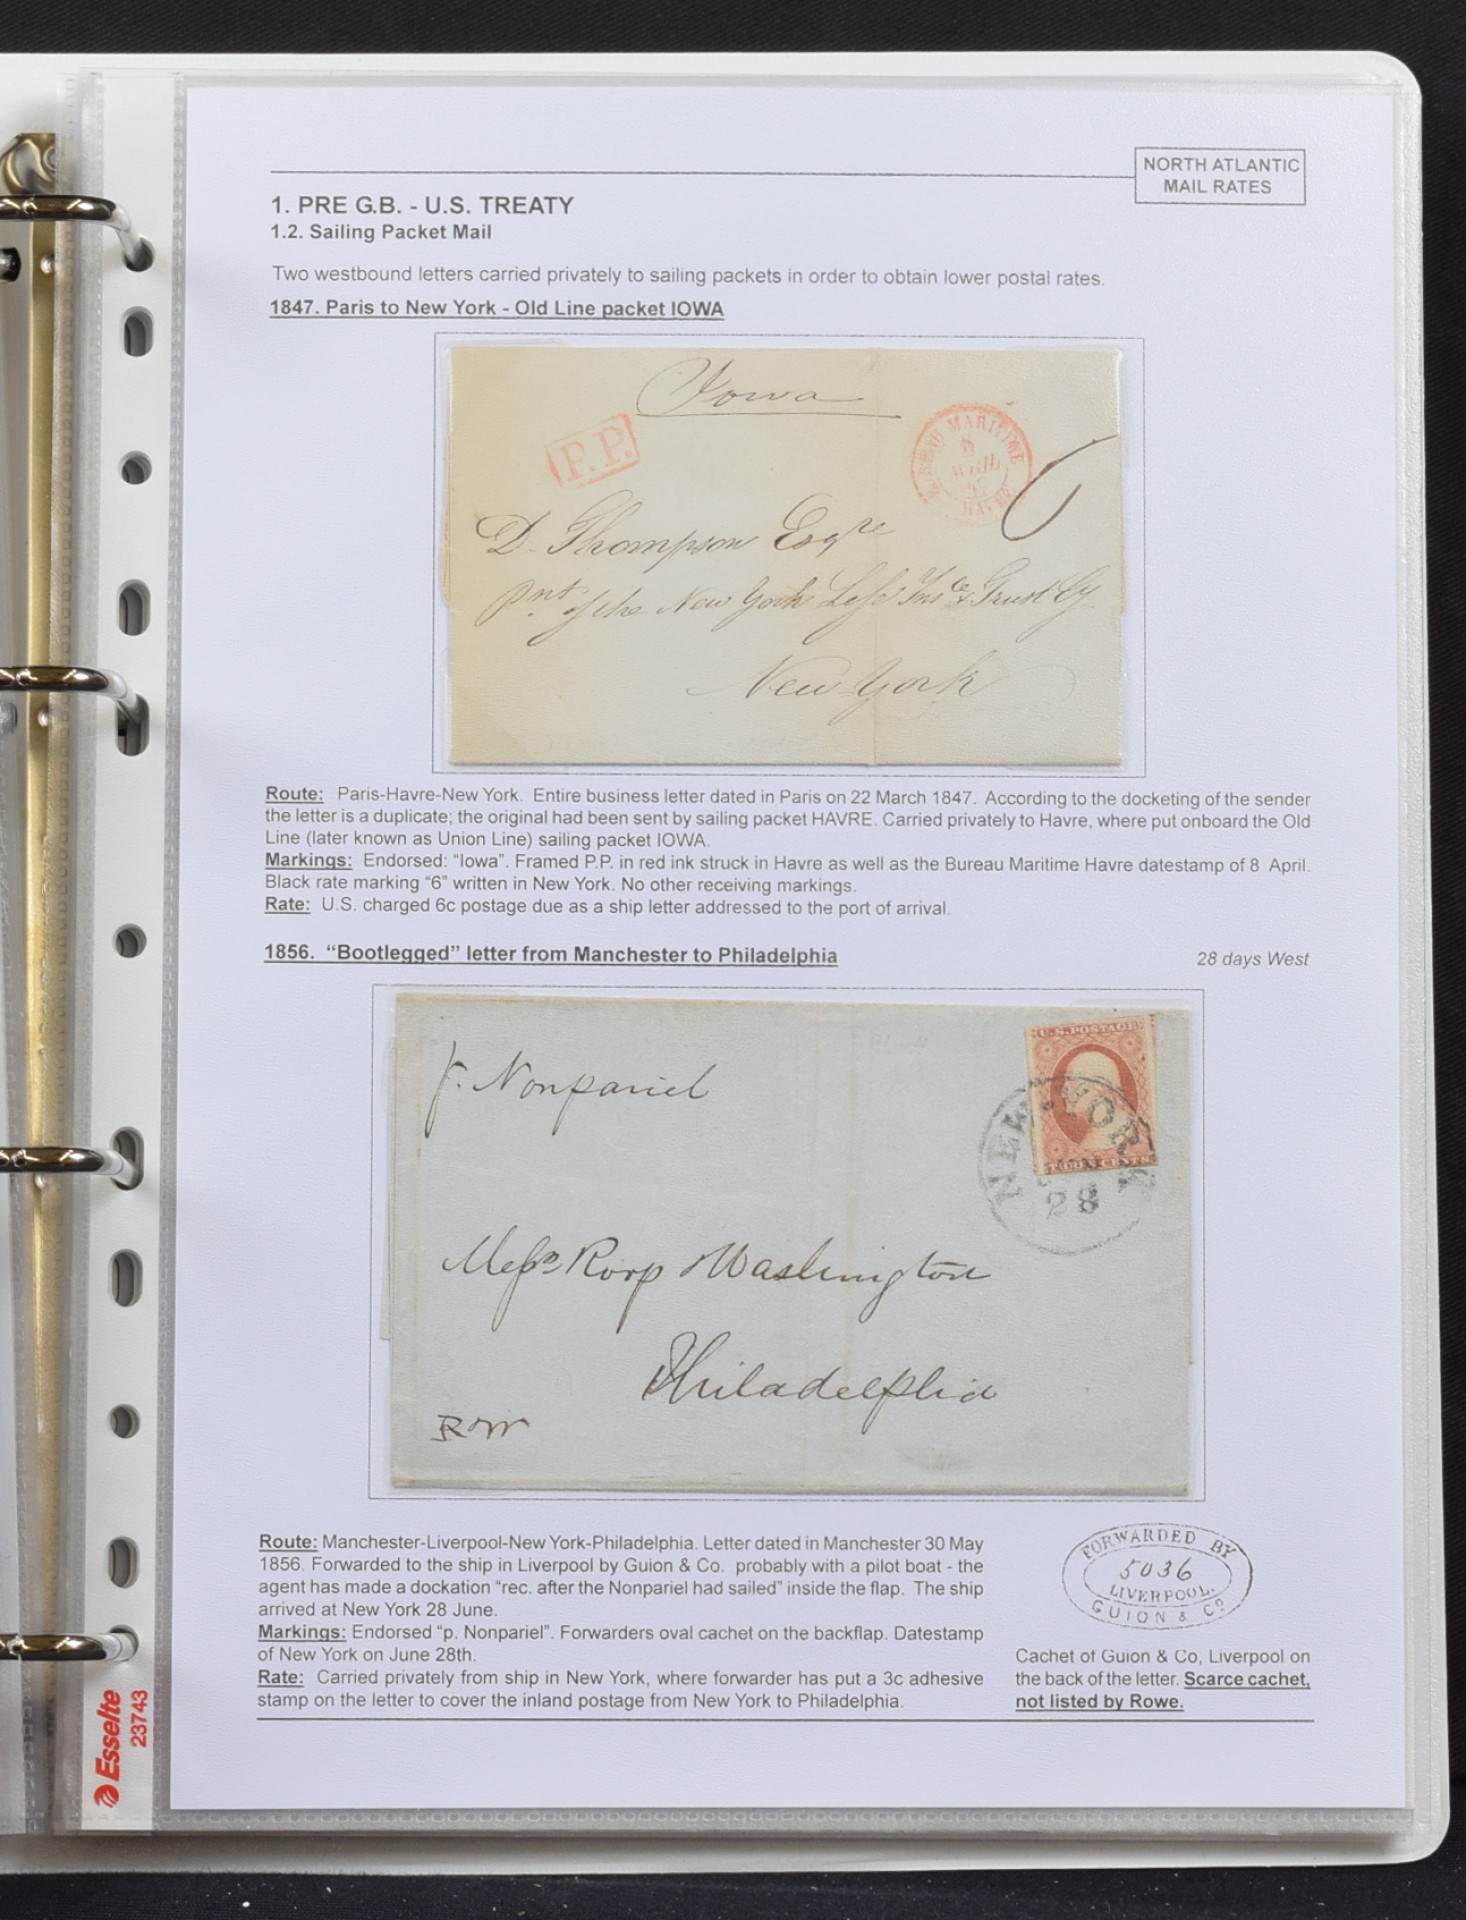 NORTH ATLANTIC
MAIL RATES
1. PRE G.B. - U.S. TREATY
1.2. Sailing Packet Mail
Two westbound letters carried privately to sailing packets in order to obtain lower postal rates.
1847. Paris to New York - Old Line packet IOWA
Iowa
P.P.
BUREAU MARITIME
8
AVRIL
47
HAVRE
6
D. Thompson Esqre
Pnt. of the New York Life Insce & Trust Cy
New York
Route: Paris-Havre-New York. Entire business letter dated in Paris on 22 March 1847. According to the docketing of the sender
the letter is a duplicate; the original had been sent by sailing packet HAVRE. Carried privately to Havre, where put onboard the Old
Line (later known as Union Line) sailing packet IOWA.
Markings: Endorsed: “Iowa”. Framed P.P. in red ink struck in Havre as well as the Bureau Maritime Havre datestamp of 8 April.
Black rate marking “6” written in New York. No other receiving markings.
Rate: U.S. charged 6c postage due as a ship letter addressed to the port of arrival.
1856. “Bootlegged” letter from Manchester to Philadelphia
28 days West
p. Nonpariel
U.S. POSTAGE
THREE CENTS
NEW-YORK
28
Messrs Rorp Washington
Philadelphia
RW
Route: Manchester-Liverpool-New York-Philadelphia. Letter dated in Manchester 30 May
1856. Forwarded to the ship in Liverpool by Guion & Co. probably with a pilot boat - the
agent has made a dockation “rec. after the Nonpariel had sailed” inside the flap. The ship
arrived at New York 28 June.
Markings: Endorsed “p. Nonpariel”. Forwarders oval cachet on the backflap. Datestamp
of New York on June 28th.
Rate: Carried privately from ship in New York, where forwarder has put a 3c adhesive
stamp on the letter to cover the inland postage from New York to Philadelphia.
FORWARDED BY
5036
LIVERPOOL.
GUION & Co
Cachet of Guion & Co, Liverpool on
the back of the letter. Scarce cachet,
not listed by Rowe.
Esselte
23743